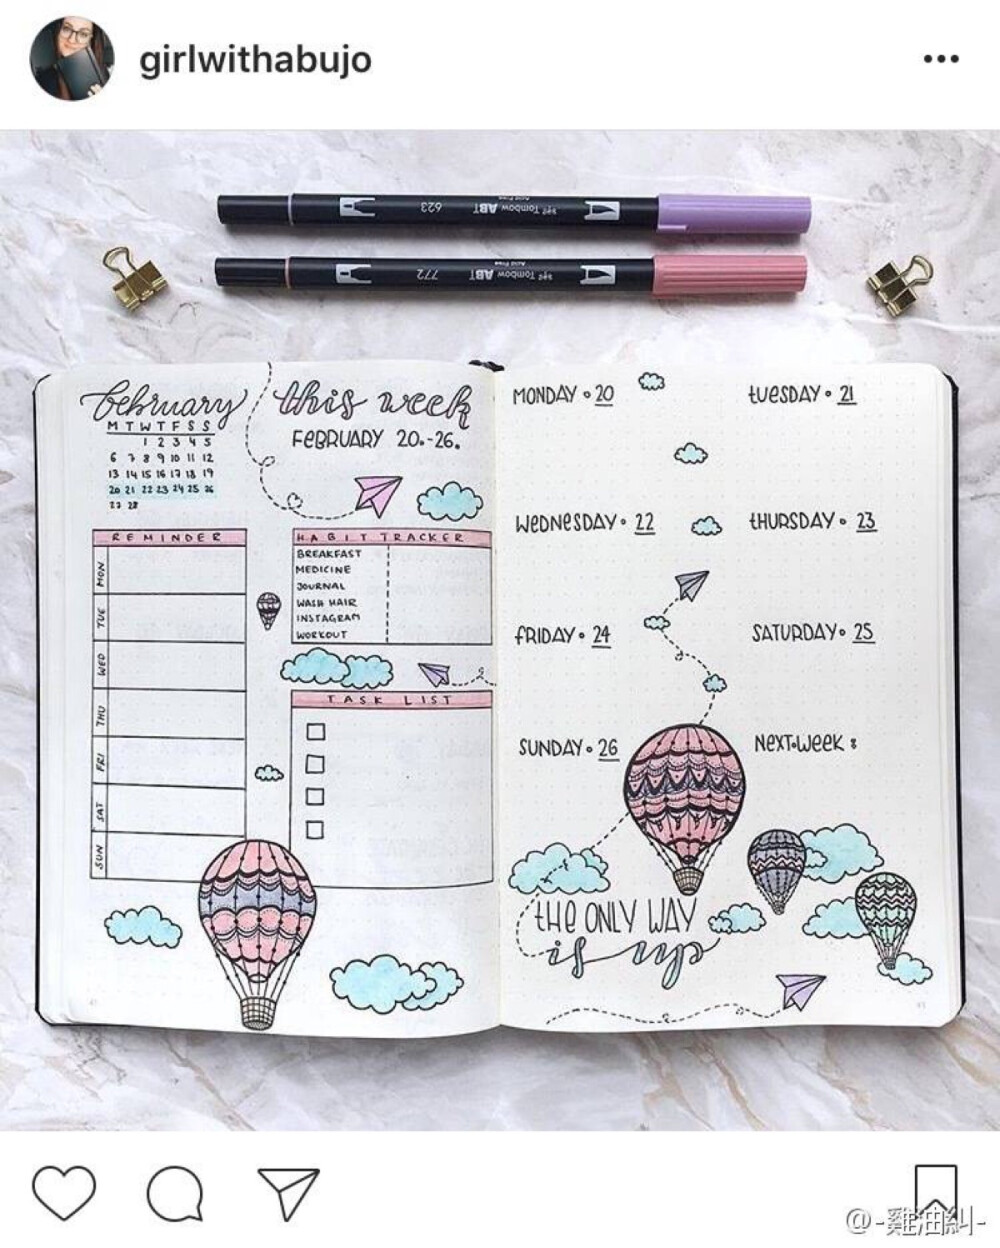 girlwithabujo
623
Tombow ABT
772
Tombow ABT
february
M T W T F S S
1 2 3 4 5
6 7 8 9 10 11 12
13 14 15 16 17 18 19
20 21 22 23 24 25 26
27 28
this week
FEBRUARY 20.-26.
REMINDER
MON
TUE
WED
THU
FRI
SAT
SUN
HABIT TRACKER
BREAKFAST
MEDICINE
JOURNAL
WASH HAIR
INSTAGRAM
WORKOUT
TASK LIST
MONDAY • 20
TUESDAY • 21
WEDNESDAY • 22
THURSDAY • 23
FRIDAY • 24
SATURDAY • 25
SUNDAY • 26
NEXT•WEEK :
THE ONLY WAY
is up
@-雞油糾-